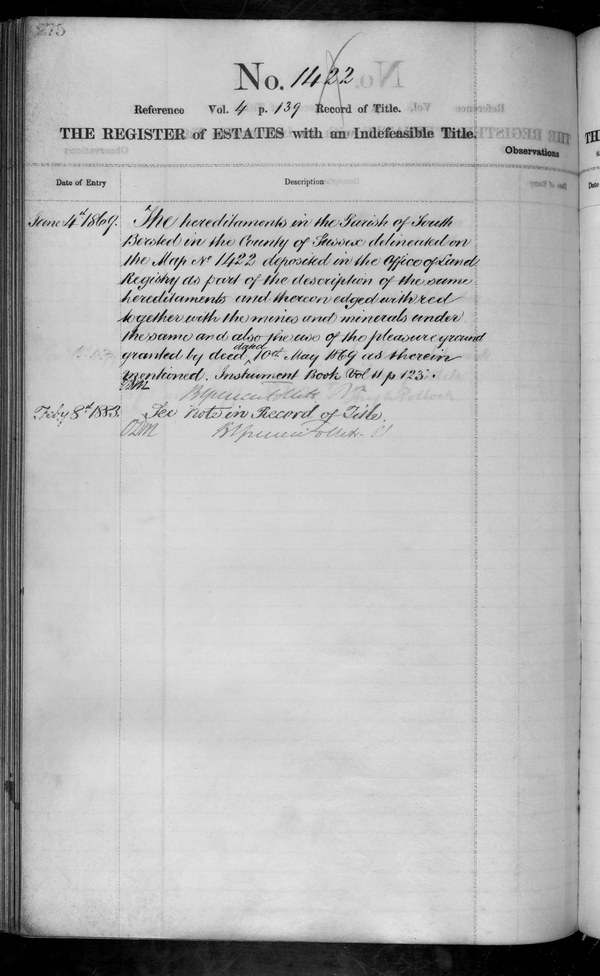 275
No. 1422
Reference Vol. 4 p. 139 Record of Title.
THE REGISTER of ESTATES with an Indefeasible Title.
Observations
Date of Entry
Description
June 4th 1869. The hereditaments in the Parish of South
Bersted in the County of Sussex delineated on
the Map No 1422 deposited in the Office of Land
Registry as part of the description of the same
hereditaments and thereon edged with red
together with the mines and minerals under
the same and also the use of the pleasure ground
granted by deed dated 10th May 1869 as therein
mentioned. Instrument Book Vol 11 p 123.
Feby 8th 1883. See Note in Record of Title.